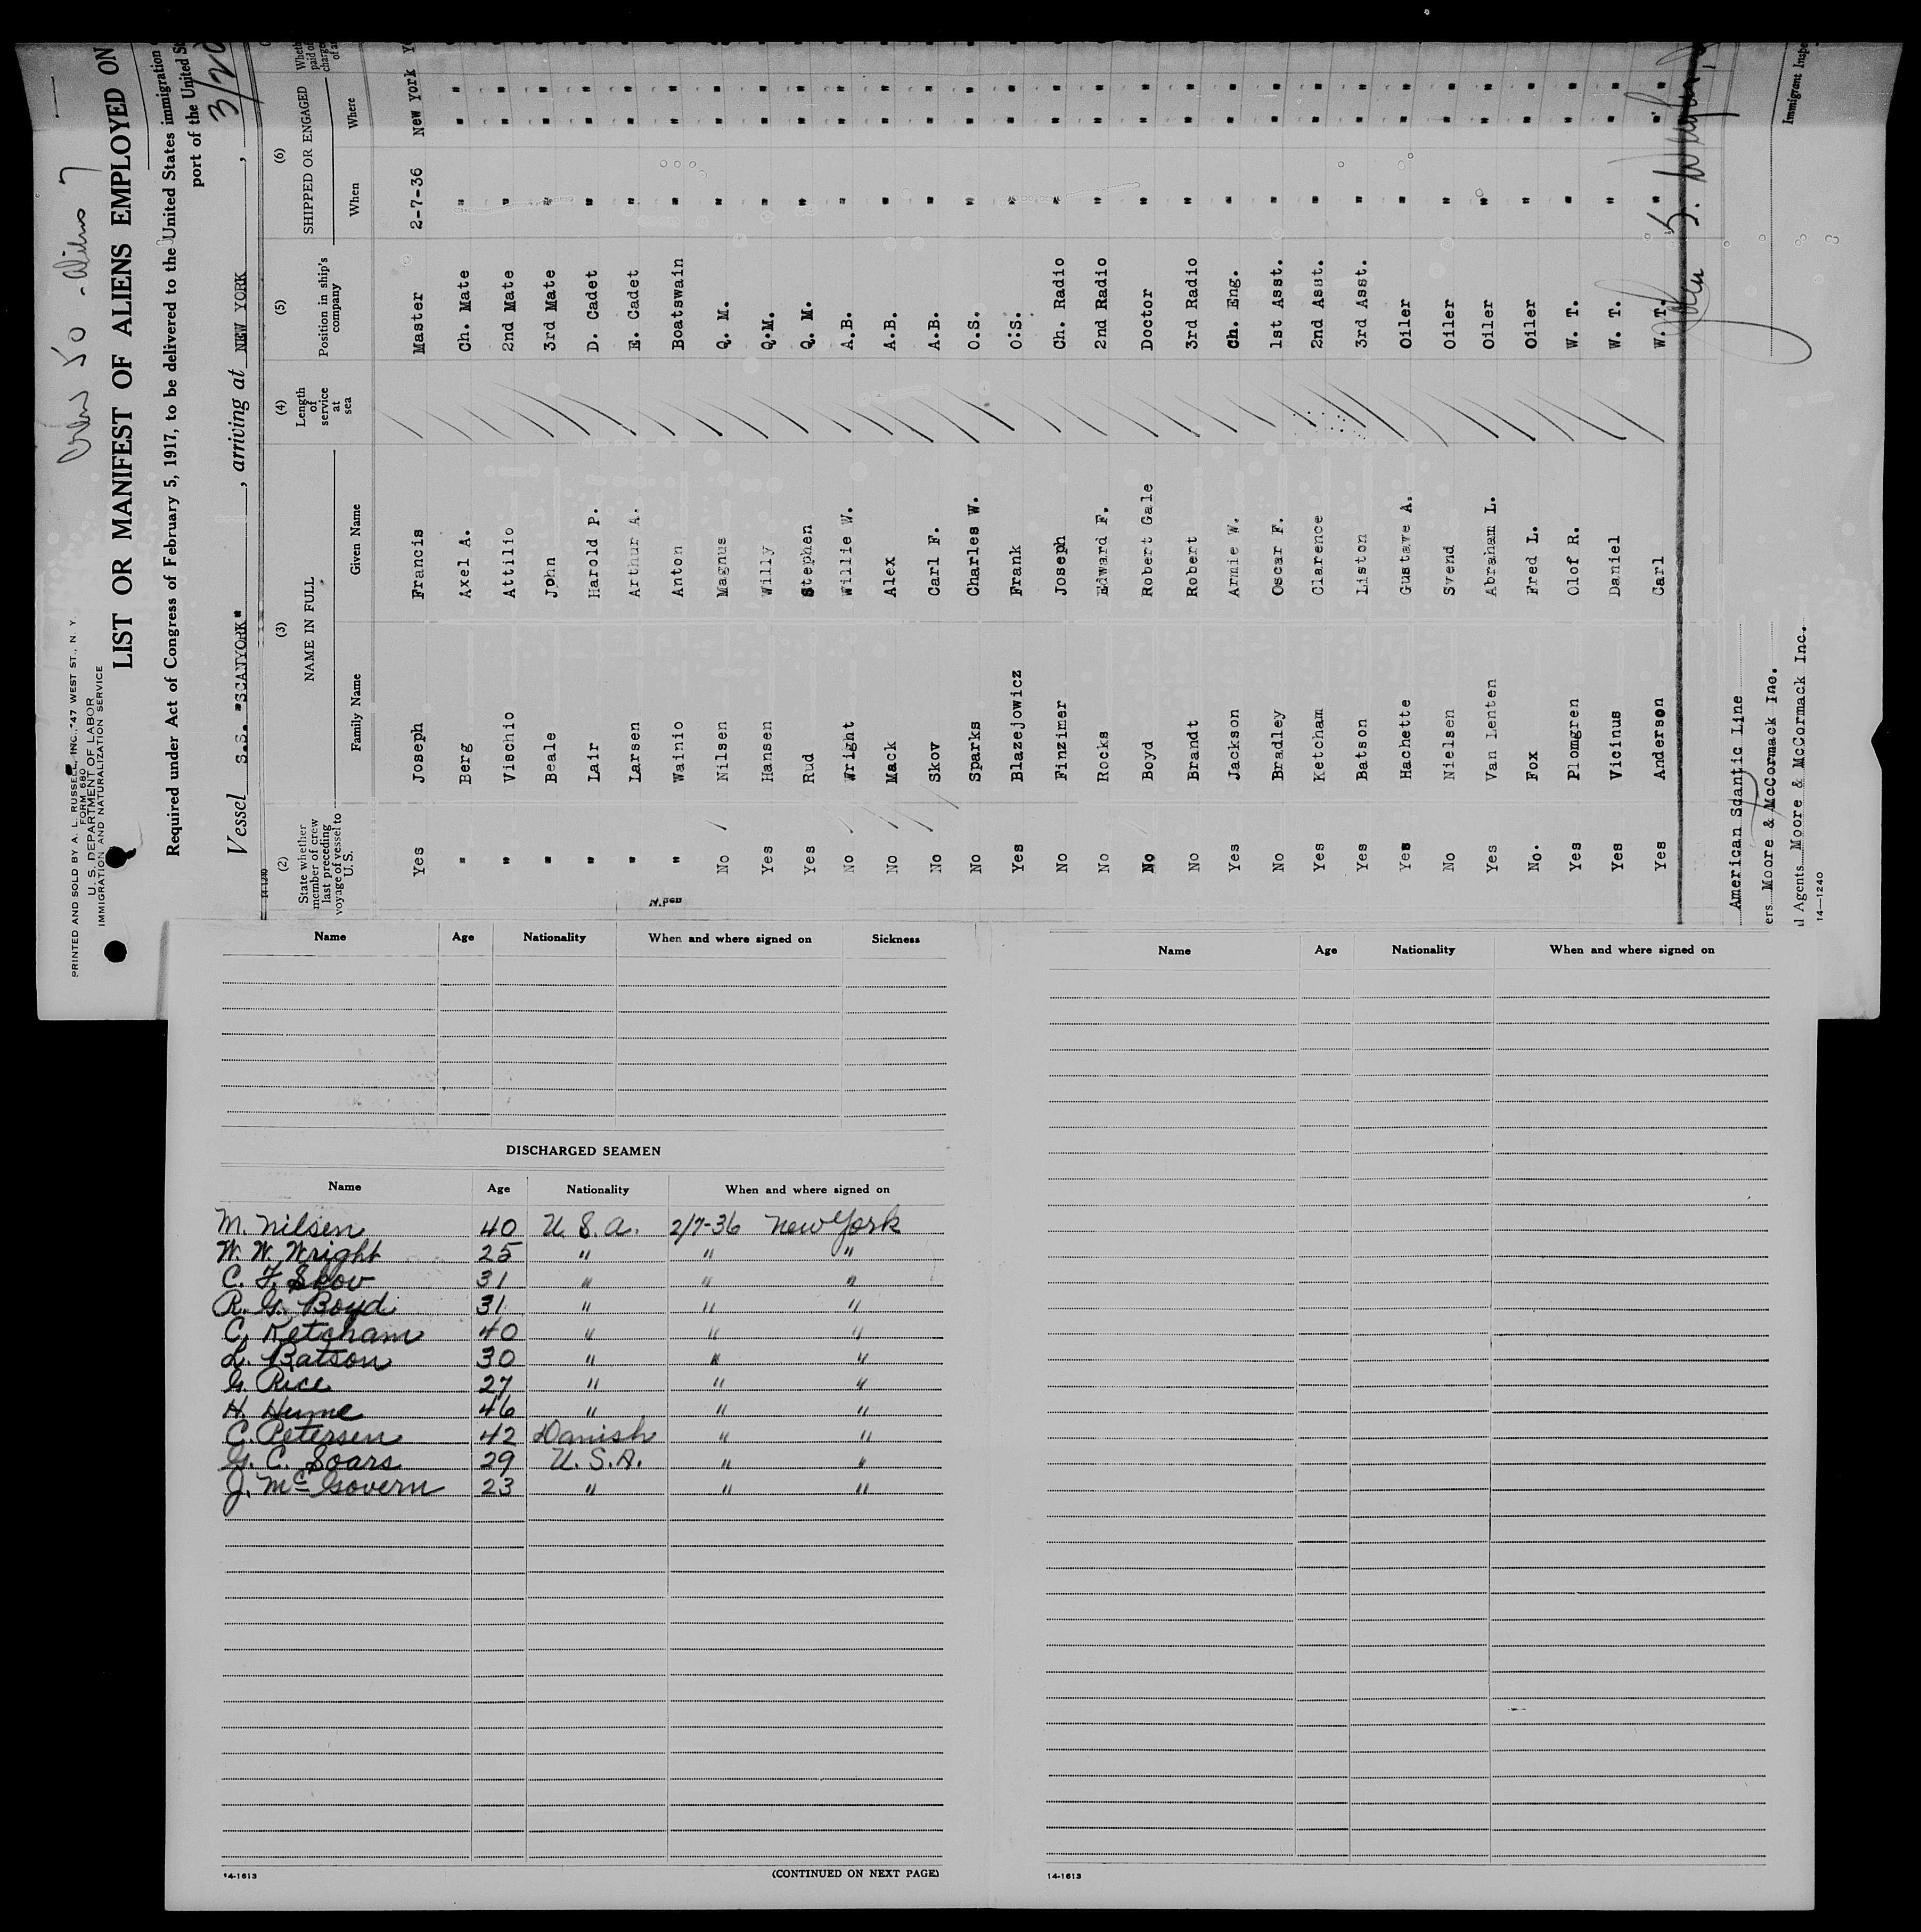 Crew 50 - aliens 7
PRINTED AND SOLD BY A. L. RUSSELL, INC., 47 WEST ST., N. Y.
FORM 680
U. S. DEPARTMENT OF LABOR
IMMIGRATION AND NATURALIZATION SERVICE
LIST OR MANIFEST OF ALIENS EMPLOYED ON
Required under Act of Congress of February 5, 1917, to be delivered to the United States immigration
port of the United St
Vessel S.S. "SCANYORK", arriving at NEW YORK, 3/20
14-1240
(2) (3) (4) (5) (6)
State whether member of crew last preceding voyage of vessel to U.S. NAME IN FULL Length of service at sea Position in ship's company SHIPPED OR ENGAGED
Family Name Given Name When Where
Yes Joseph Francis Master 2-7-36 New York
" Berg Axel A. Ch. Mate " " "
" Vischio Attilio 2nd Mate " " "
" Beale John 3rd Mate " " "
" Lair Harold P. D. Cadet " " "
" Larsen Arthur A. E. Cadet " " "
" Wainio Anton Boatswain " " "
No Nilsen Magnus Q. M. " " "
Yes Hansen Willy Q.M. " " "
Yes Rud Stephen Q. M. " " "
No Wright Willie W. A.B. " " "
No Mack Alex A.B. " " "
No Skov Carl F. A.B. " " "
No Sparks Charles W. O.S. " " "
Yes Blazejowicz Frank O.S. " " "
No Finzimer Joseph Ch. Radio " " "
No Rocks Edward F. 2nd Radio " " "
No Boyd Robert Gale Doctor " " "
No Brandt Robert 3rd Radio " " "
Yes Jackson Armie W. Ch. Eng. " " "
No Bradley Oscar F. 1st Asst. " " "
Yes Ketcham Clarence 2nd Asst. " " "
Yes Batson Liston 3rd Asst. " " "
Yes Hachette Gustave A. Oiler " " "
No Nielsen Svend Oiler " " "
Yes Van Lenten Abraham L. Oiler " " "
No. Fox Fred L. Oiler " " "
Yes Plomgren Olof R. W. T. " " "
Yes Vicinus Daniel W. T. " " "
Yes Anderson Carl W. T. " " "
American Scantic Line
ers Moore & McCormack Inc.
l Agents Moore & McCormack Inc.
Immigrant Inspe
14—1240
Name Age Nationality When and where signed on Sickness
DISCHARGED SEAMEN
Name Age Nationality When and where signed on
M. Nilsen 40 U.S.A. 2/7-36 New York
W. W. Wright 25 " " "
C. F. Skov 31 " " "
R. G. Boyd 31 " " "
C. Ketcham 40 " " "
L. Batson 30 " " "
G. Rice 27 " " "
H. Hume 46 " " "
C. Petersen 42 Danish " "
G. C. Soars 29 U.S.A. " "
J. McGovern 23 " " "
14-1613
(CONTINUED ON NEXT PAGE)
Name Age Nationality When and where signed on
14-1613